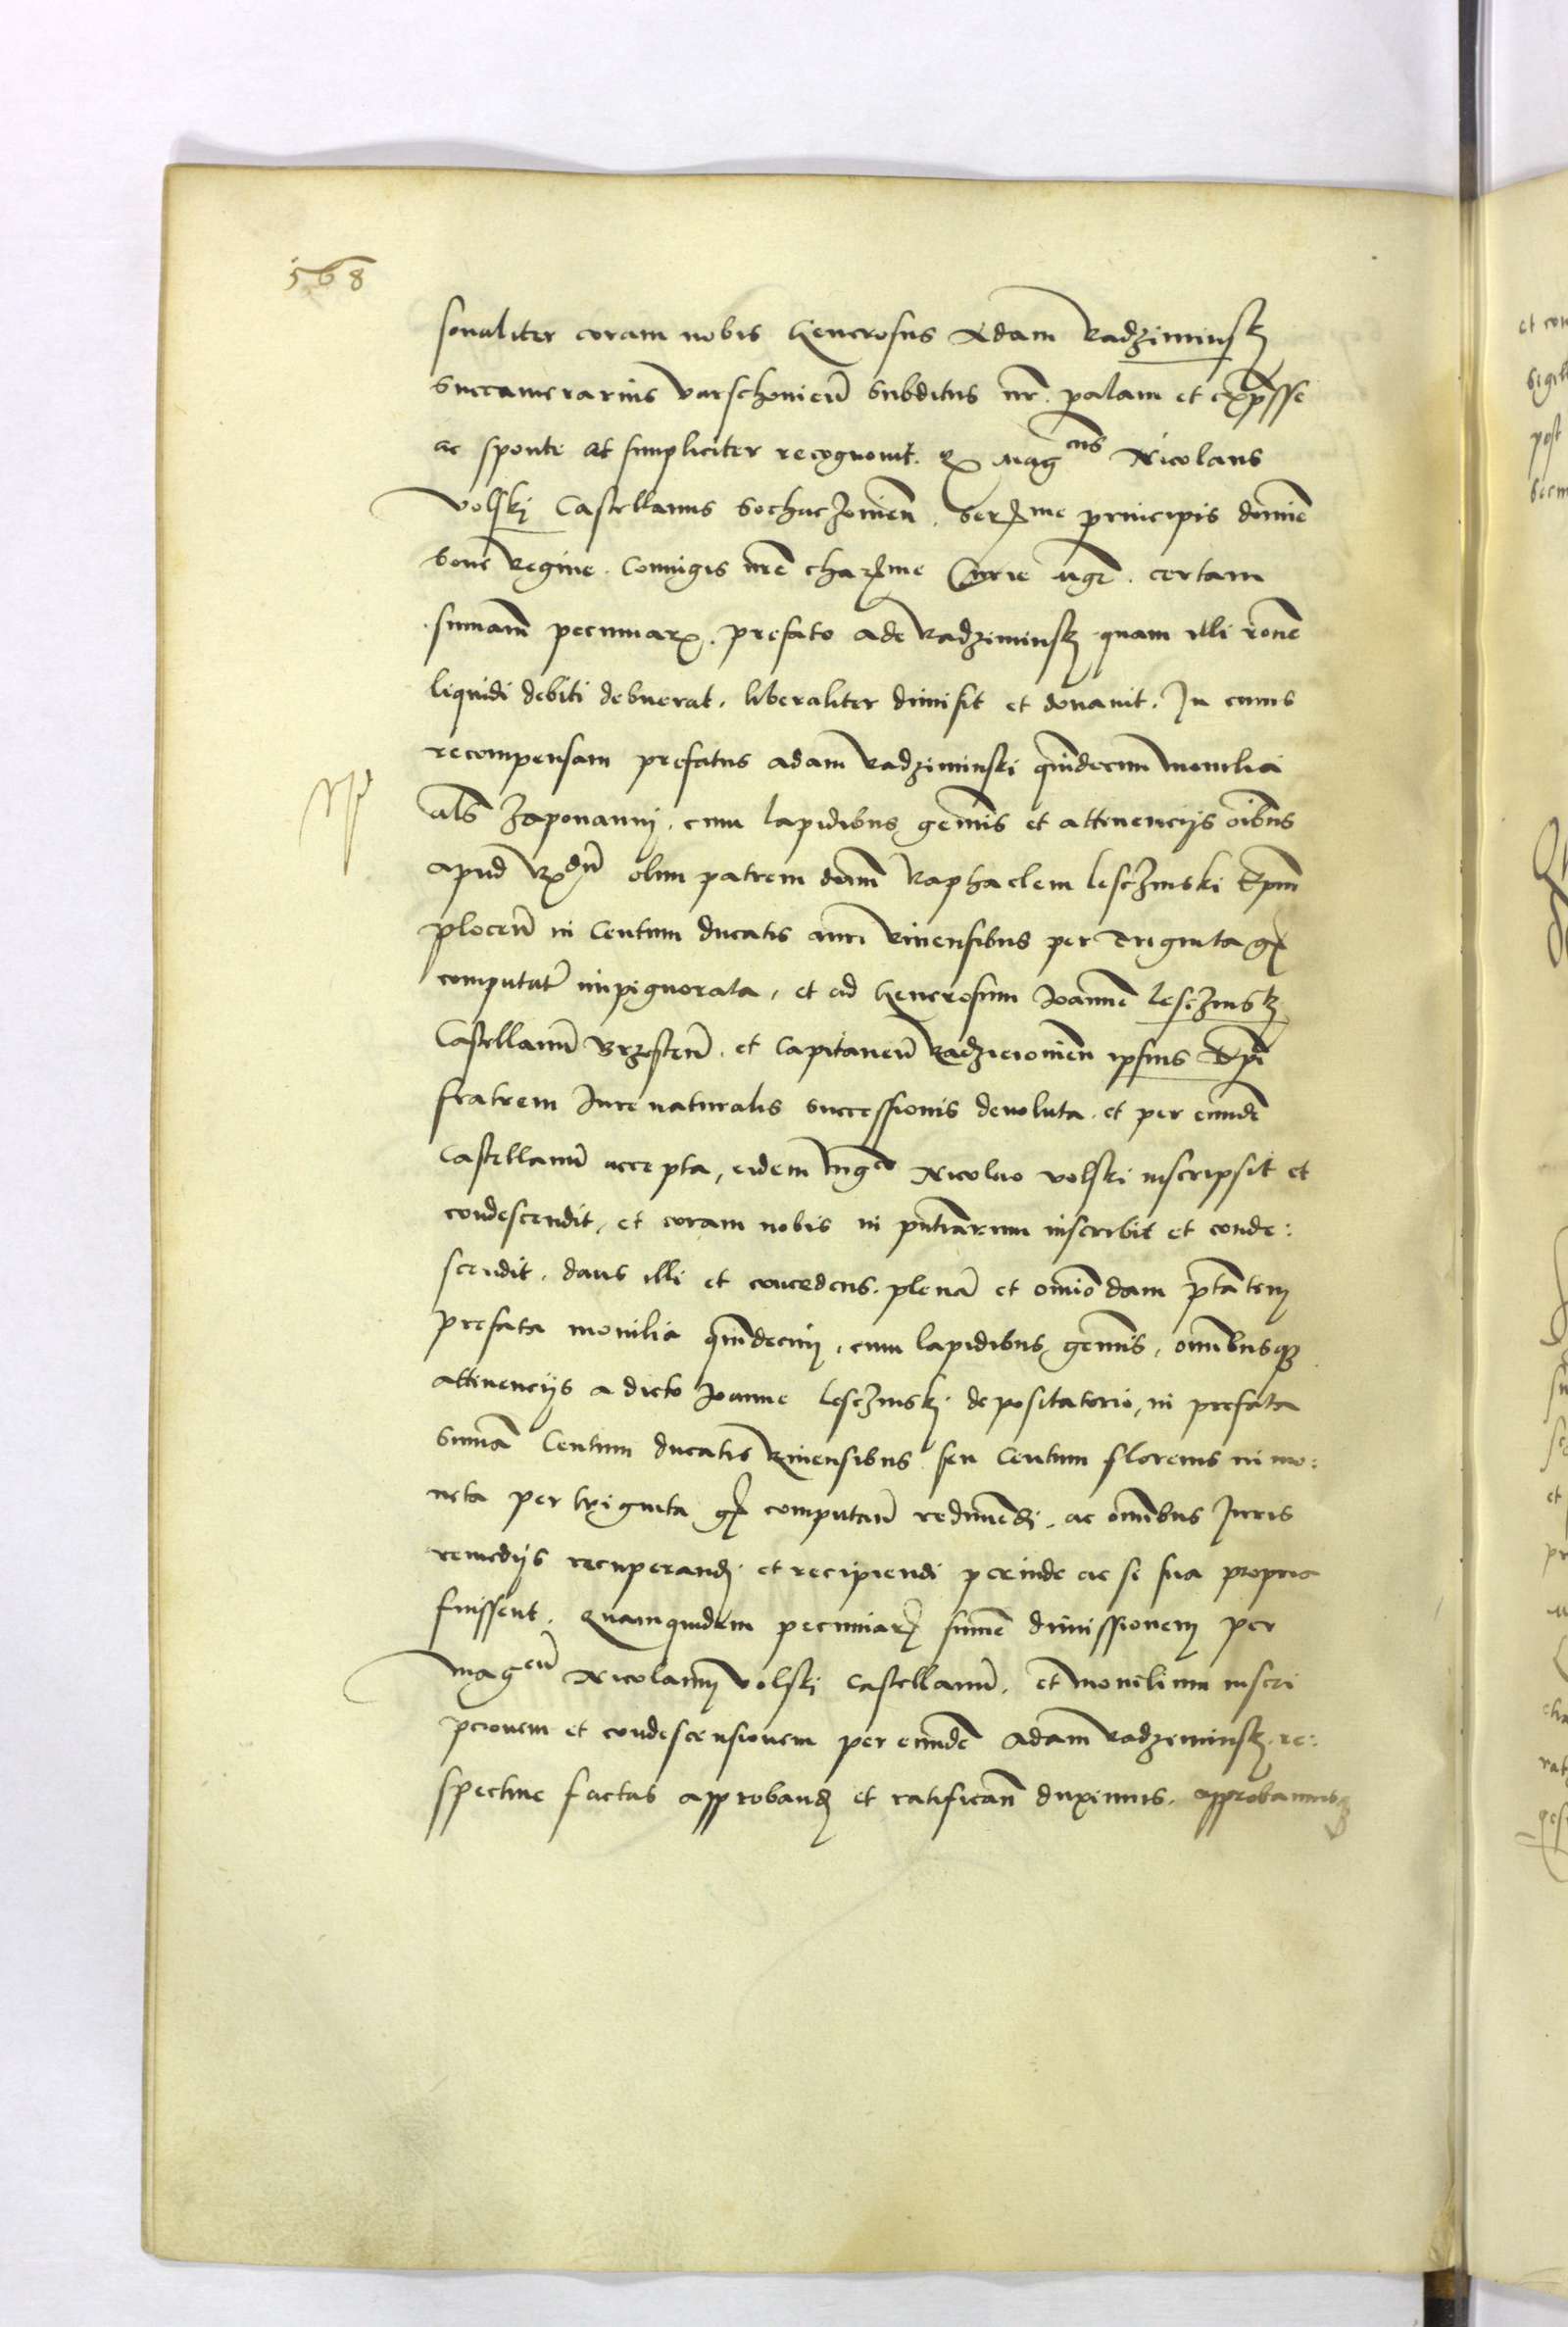 568
sonaliter coram nobis Generosus Adam Radzimińsky
Succamerarius varschovieñ subditus nr̃. palam et exp̃sse
ac sponte et simpliciter recognovit. Qz Magcus Nicolaus
volski Castellanus Sochaczovieñ. Serme principis domine
bone Regine. Coniugis nr̃e charme Curie Mgr̃. certam
summam pecuniarz. prefato ade Radziminsky. quam illi rone
liquidi debiti debuerat. liberaliter dimisit et donavit. In cuius
recompensam prefatus adam Radziminski quindecim monilia
als zaponanny. cum lapidibus gemis et attinencijs oibus
apud Rdũ olim patrem dom̃ Raphaelem lesczinski Epm̃
ploceñ in Centum ducatis auri Rinensibus per Triginta gr
computat̃ impignorata, et ad Generosum Joannẽ lesczinsky
Castellanũ Brzesteñ. et Capitaneũ Radzieiovieñ ipsius Epi
fratrem Iure naturalis successionis devoluta. et per eundẽ
Castellanũ accepta, eidem Mgco Nicolao volski inscripsit et
condescendit, et coram nobis in pñtiarum inscribit et conde:
scendit. dans illi et concedens. plenã et omñodam ptãtem
prefata monilia quindecim, cum lapidibus gemis, omnibusqz
attinencijs a dicto Joanne lesczinsky. depositatorio, in prefata
Summa Centum ducatis Rinensibus seu Centum florenis in mo:
neta per triginta gr computañ redimendi, ac omnibus Juris
remedijs recuperandi et recipiendi perinde ac si sua propria
fuissent. Quamquidem pecuniarz summe dimissionem per
Magcũ Nicolaum volski Castellanũ. et monilium inscri
pcionem et condescensionem per eundẽ Adam Radzeminsky. re:
spective factas approband et ratificañ duximus. approbamusqz